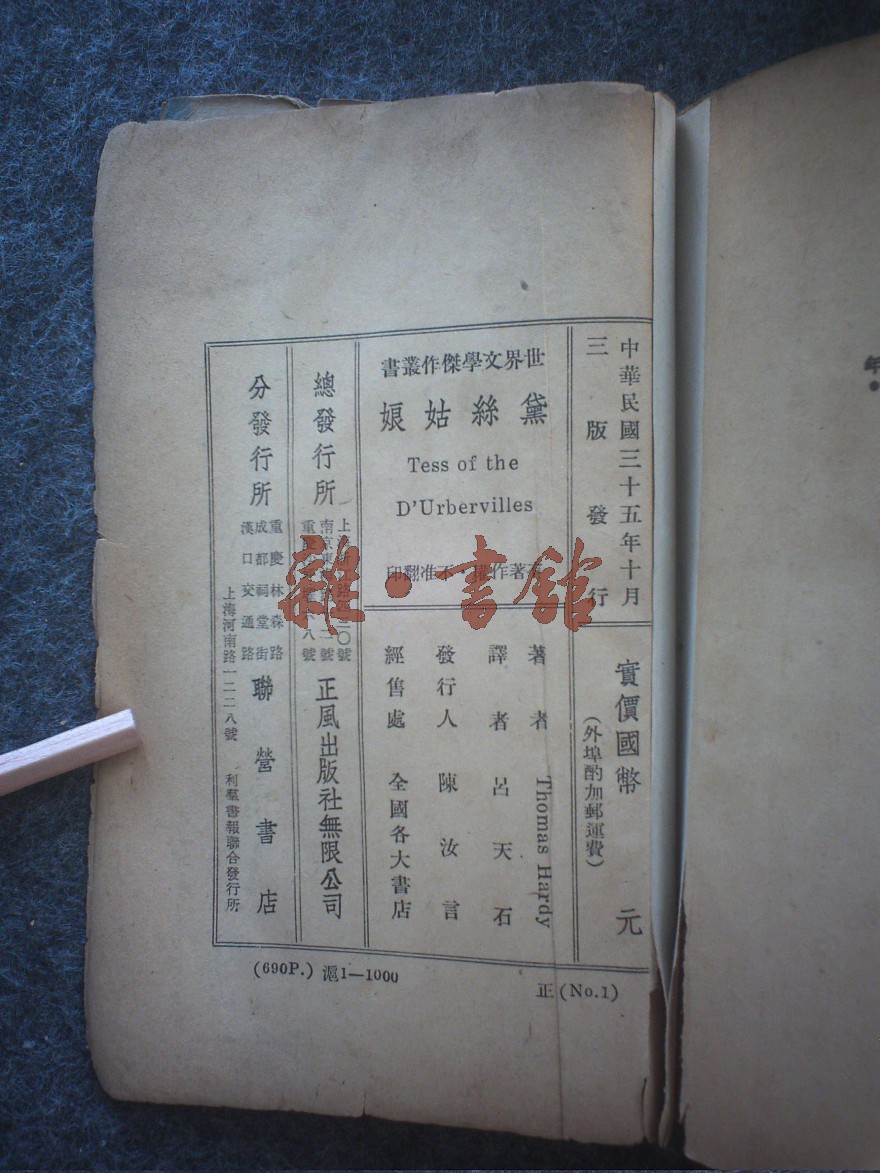 中華民國三十五年十月
三版發行
實價國幣 元
(外埠酌加郵運費)
世界文學傑作叢書
黛絲姑娘
Tess of the
D'Urbervilles
著作 不准翻印
著者 Thomas Hardy
譯者 呂天石
發行人 陳汝言
經售處 全國各大書店
總發行所
上 〇號
南京東 二號
重 八號
正風出版社無限公司
分發行所
重慶林森路
成都祠堂街
漢口交通路
聯營書店
上海河南路一二二八號
利羣書報聯合發行所
(690P.) 滬1—1000
正(No.1)
年•
雜·書館